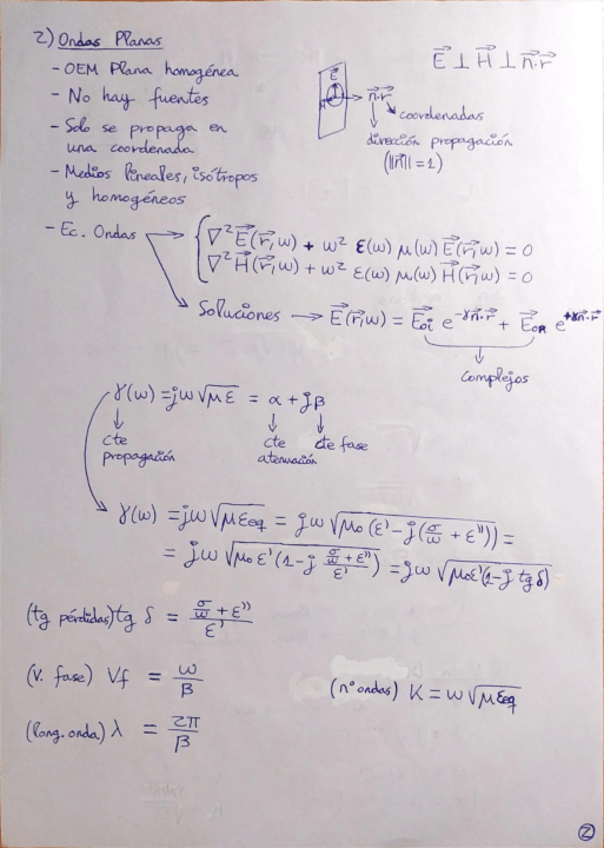 2) Ondas Planas
- OEM Plana homogénea
- No hay fuentes
- Solo se propaga en
una coordenada
- Medios lineales, isótropos
y homogéneos
E⃗
H⃗
n⃗·r⃗
coordenadas
dirección propagación
(||n⃗|| = 1)
E⃗ ⊥ H⃗ ⊥ n⃗·r⃗
- Ec. Ondas → { ∇² E⃗(r⃗,ω) + ω² ε(ω) μ(ω) E⃗(r⃗,ω) = 0
∇² H⃗(r⃗,ω) + ω² ε(ω) μ(ω) H⃗(r⃗,ω) = 0
Soluciones → E⃗(r⃗,ω) = E⃗oi e^(-γn⃗·r⃗) + E⃗oR e^(+γn⃗·r⃗)
complejos
γ(ω) = jω√(με) = α + jβ
cte
propagación
cte
atenuación
cte fase
γ(ω) = jω√(μεeq) = jω√(μ₀(ε' - j(σ/ω + ε''))) =
= jω√(μ₀ε'(1 - j (σ/ω + ε'')/ε')) = jω√(μ₀ε'(1 - j tg δ))
(tg pérdidas) tg δ = (σ/ω + ε'')/ε'
(v. fase) Vf = ω/β
(nº ondas) K = ω√(μεeq)
(long. onda) λ = 2π/β
2